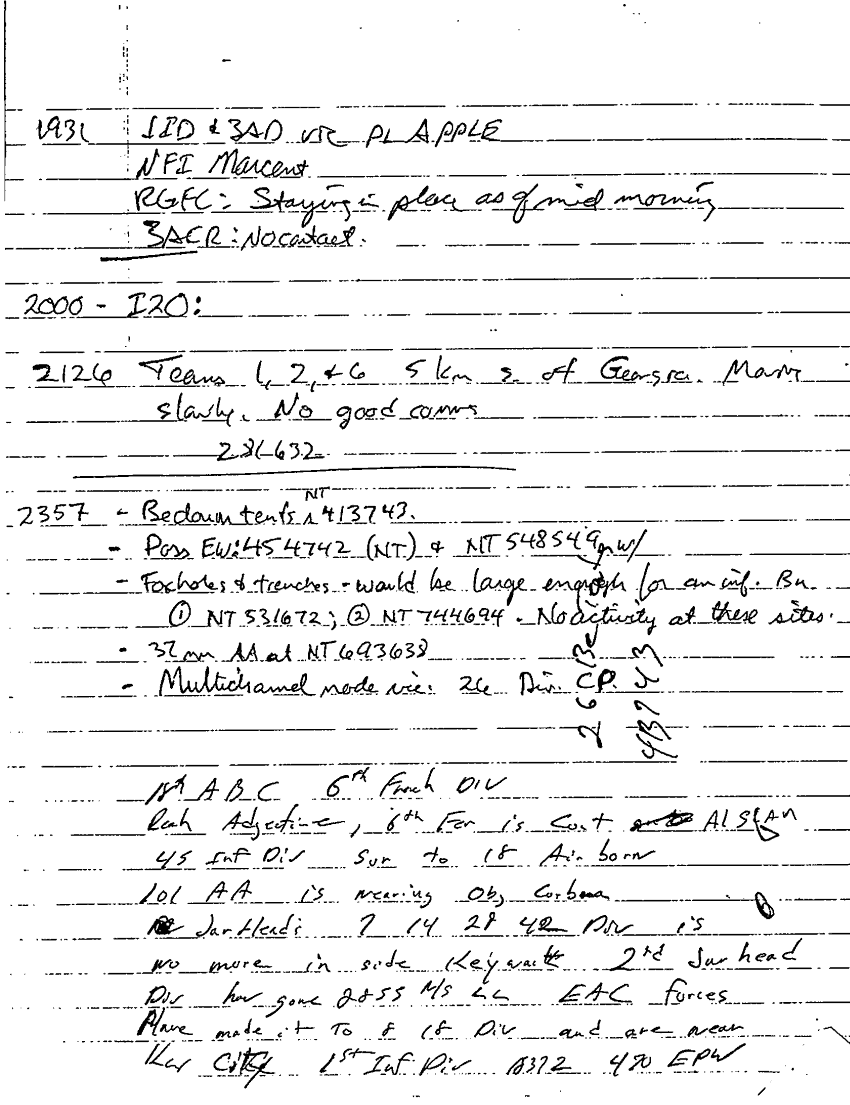 1931 1ID & 3AD vic PL APPLE
NFI Marcent
RGFC: Staying in place as of mid morning
3ACR: No contact.
2000 - I2O:
2126 Teams 1, 2, & 6 5 km s. of Georgia. Moving
slowly. No good comms
286632
2357 - Bedouin tents NT 413743.
- Poss EW: 454742 (NT) & NT 548549
- Foxholes & trenches - would be large enough for an inf. Bn.
① NT 531672; ② NT 744694. No activity at these sites.
- 37 mm AA at NT 693638
- Multichannel node vic. 26 Div. CP.
26 Bde
43743
18th ABC 6th French Div
6th is AlSalman
45 Inf Div Sur to 18 Air born
101 AA is nearing Obj
Jar Heads 7 14 29 42 Div is
no more in side 2nd Jar head
Div have gone EAC forces
Have made it To 8 18 Div and are near
City 1st Inf Div 470 EPW